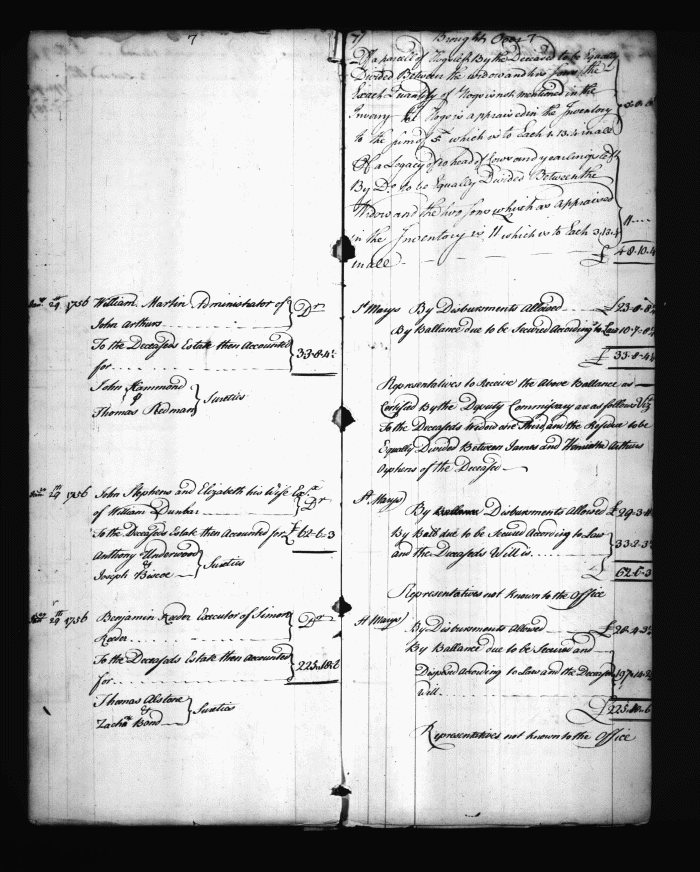 7
William Martin Administrator of
John Arthurs
Dr
To the Deceaseds Estate then Accounted
for
33-8-4
John Hammond
&
Thomas Redman
Sureties
29 1756 John Stephens and Elizabeth his Wife
of William Dunbar
Dr
To the Deceaseds Estate then Accounted for £ 62-6-3
Anthony Underwood
&
Joseph Biscoe
Sureties
29th 1756 Benjamin Reeder Executor of Simon
Reeder
Dr
To the Deceaseds Estate then Accounted
for
Thomas Alstone
&
Zachа Bond
Sureties
7
Brought Over 7
Of a parcel of Hogs left By the Deceased to be Equally
Divided Between the widow and two sons the
Exact Quantity of Hogs is not mentioned in the
Hogs is appraised in the Inventory
to the sum of 5 which is to Each 1.13.4 in all
Of a Legacy of 10 head of Cows and yearlings left
By Do. to be Equally Divided Between the
Widow and the two sons which as appraised
in the Inventory is 11 which is to Each 3.13.4
in all
11
£ 48.10.4
St Marys By Disbursments Allowed
By Ballance due to be Secured According to Law 10-7-8
£ 33-8-4
Representatives to Receive the Above Ballance as
Certified By the Deputy Commissary are as follows Viz
To the Deceaseds Widow one Third, and the Residue to be
Equally Divided Between James and Henrietta Arthurs
Orphans of the Deceased
St Marys
By Disbursments Allowed £ 29-3-
By Ball due to be Secured According to Law
and the Deceaseds Will is
33-2-3
£ 62-6-3
Representatives not known to the Office
St Marys
By Disbursments Allowed
By Ballance due to be Secured and
Disposed According to Law and the Deceaseds
Will
£ 225
Representatives not known to the Office